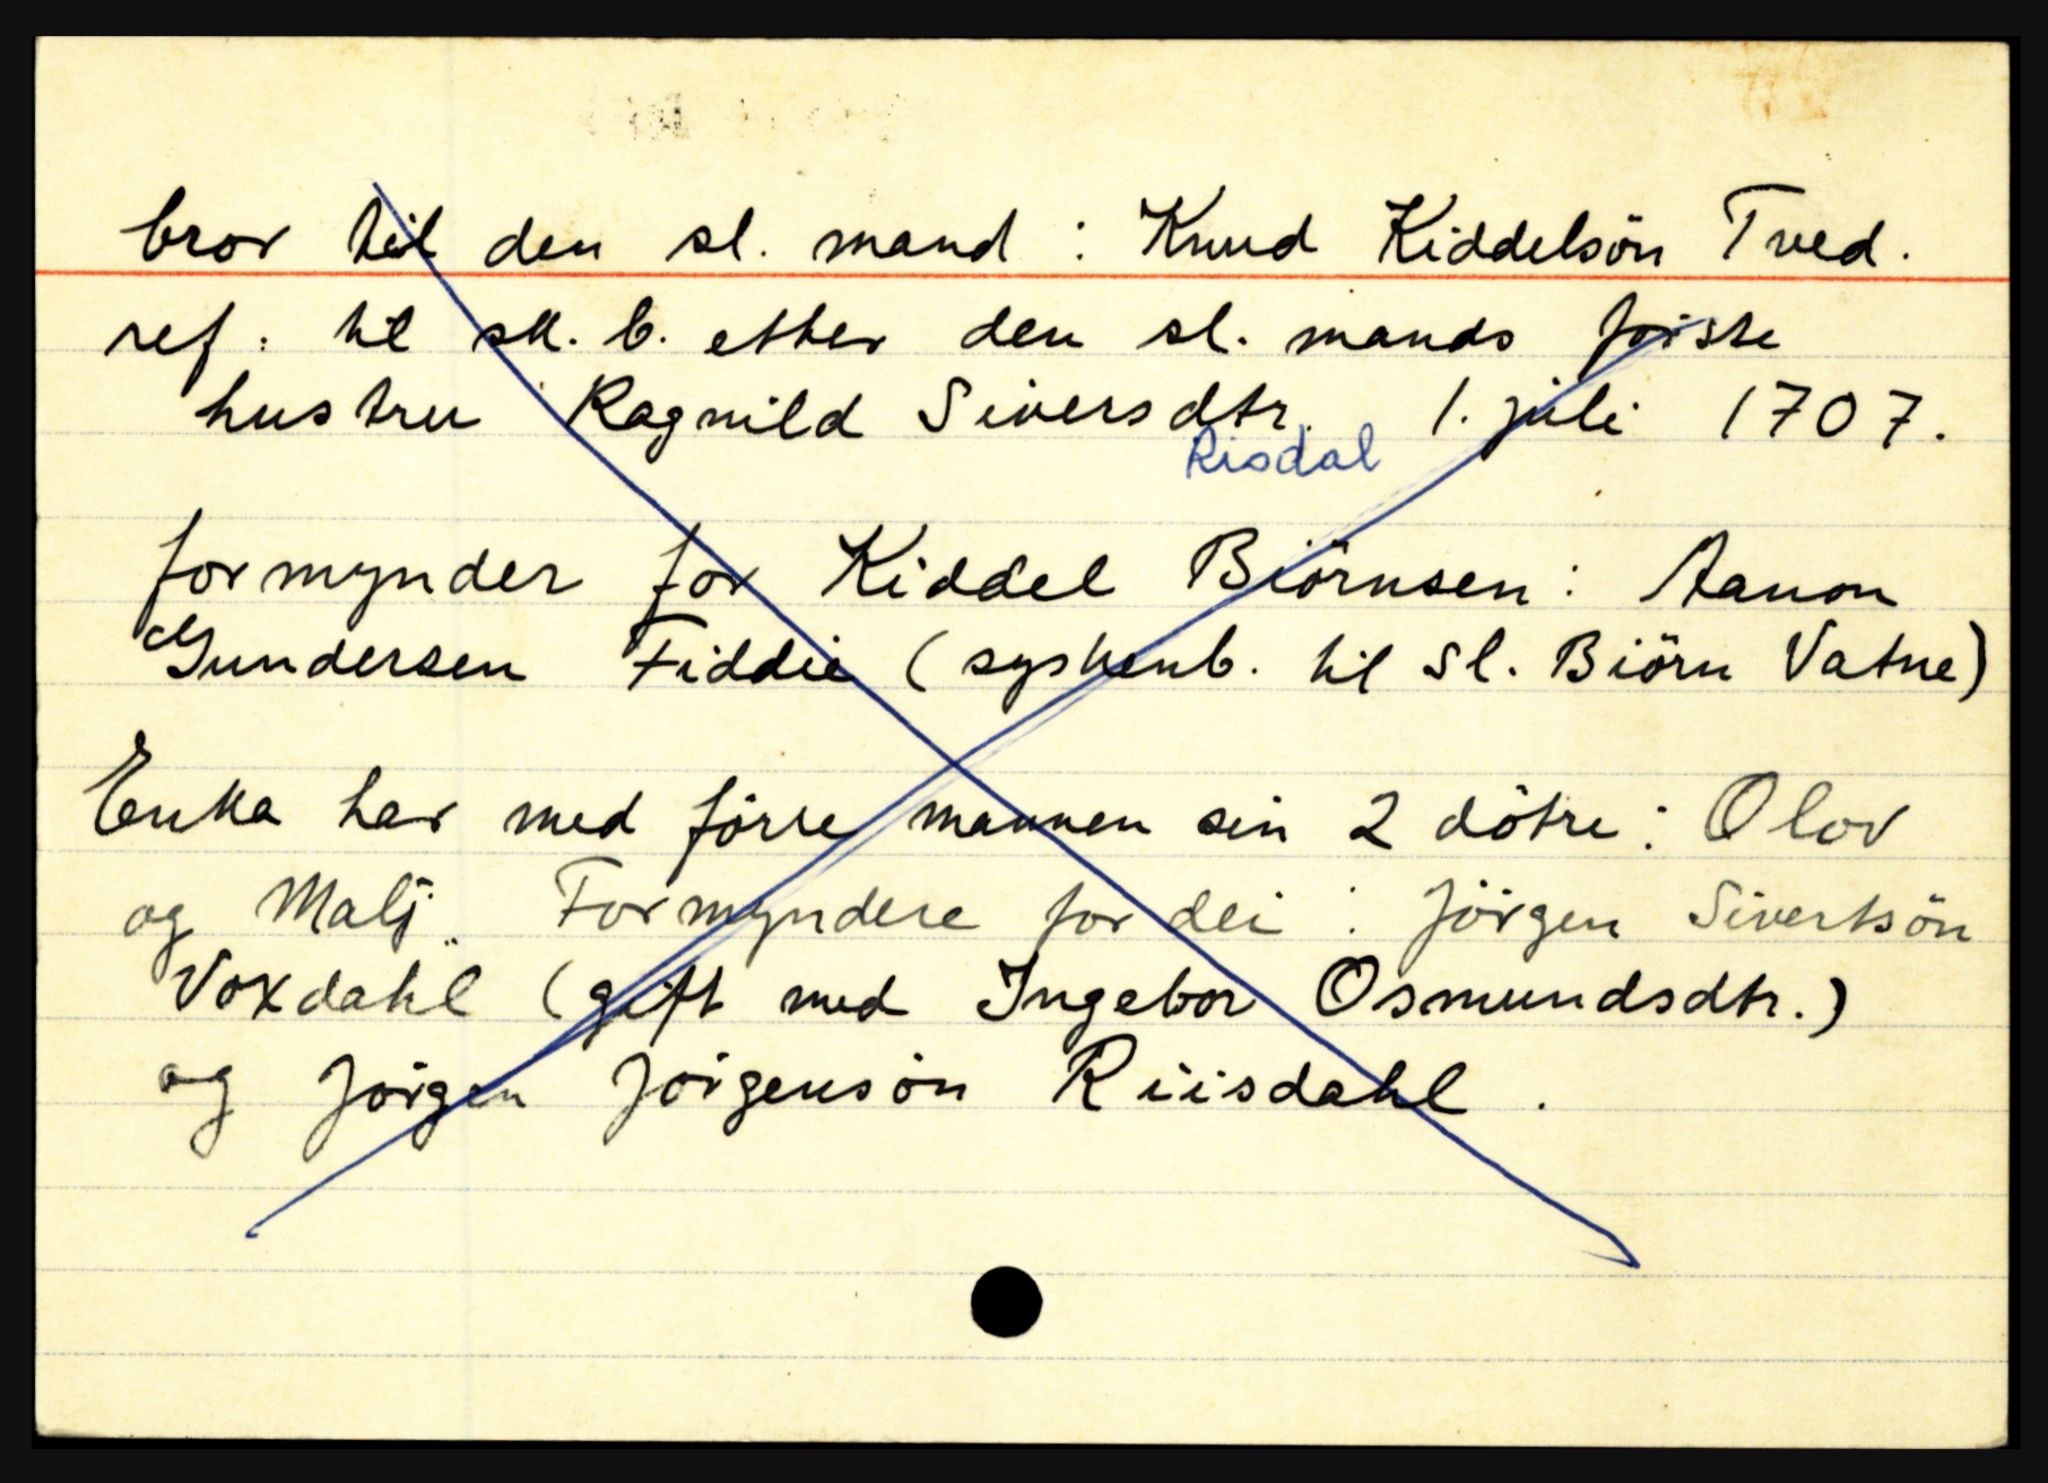 bror til den sl. mand : Knud Kiddelsön Tved.
ref : til sk. b. etter den sl. mands förste
hustru Ragnild Siversdtr. 1. juli 1707.
Risdal
formynder for Kiddel Biörnsen : Aanon
Gundersen Fiddie ( syskenb. til Sl. Biörn Vatne)
Enka har med förre mannen sin 2 dötre : Olov
og Malj. Formyndere for dei : Jörgen Sivertsön
Voxdahl (gift med Ingebor Osmundsdtr.)
og Jörgen Jörgensön Riisdahl .